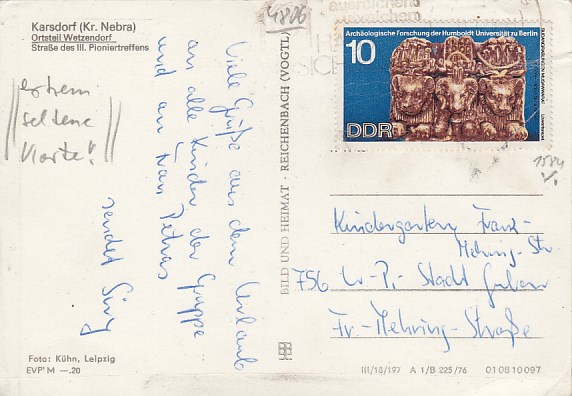 Karsdorf (Kr. Nebra)
Ortsteil Wetzendorf
Straße des III. Pioniertreffens
extrem
seltene
Karte!
4806
Archäologische Forschung der Humboldt-Universität zu Berlin
10
DDR
1584
Viele Grüße aus dem Urlaub
an alle Kinder der Gruppe
und an Frau Petras
sendet
BILD UND HEIMAT · REICHENBACH (VOGTL)
Kindergarten Franz-
Mehring-Str.
756 W.-P.-Stadt Guben
Fr.-Mehring-Straße
Foto: Kühn, Leipzig
EVP M —.20
III/18/197 A 1/B 225/76 01 08 10 097